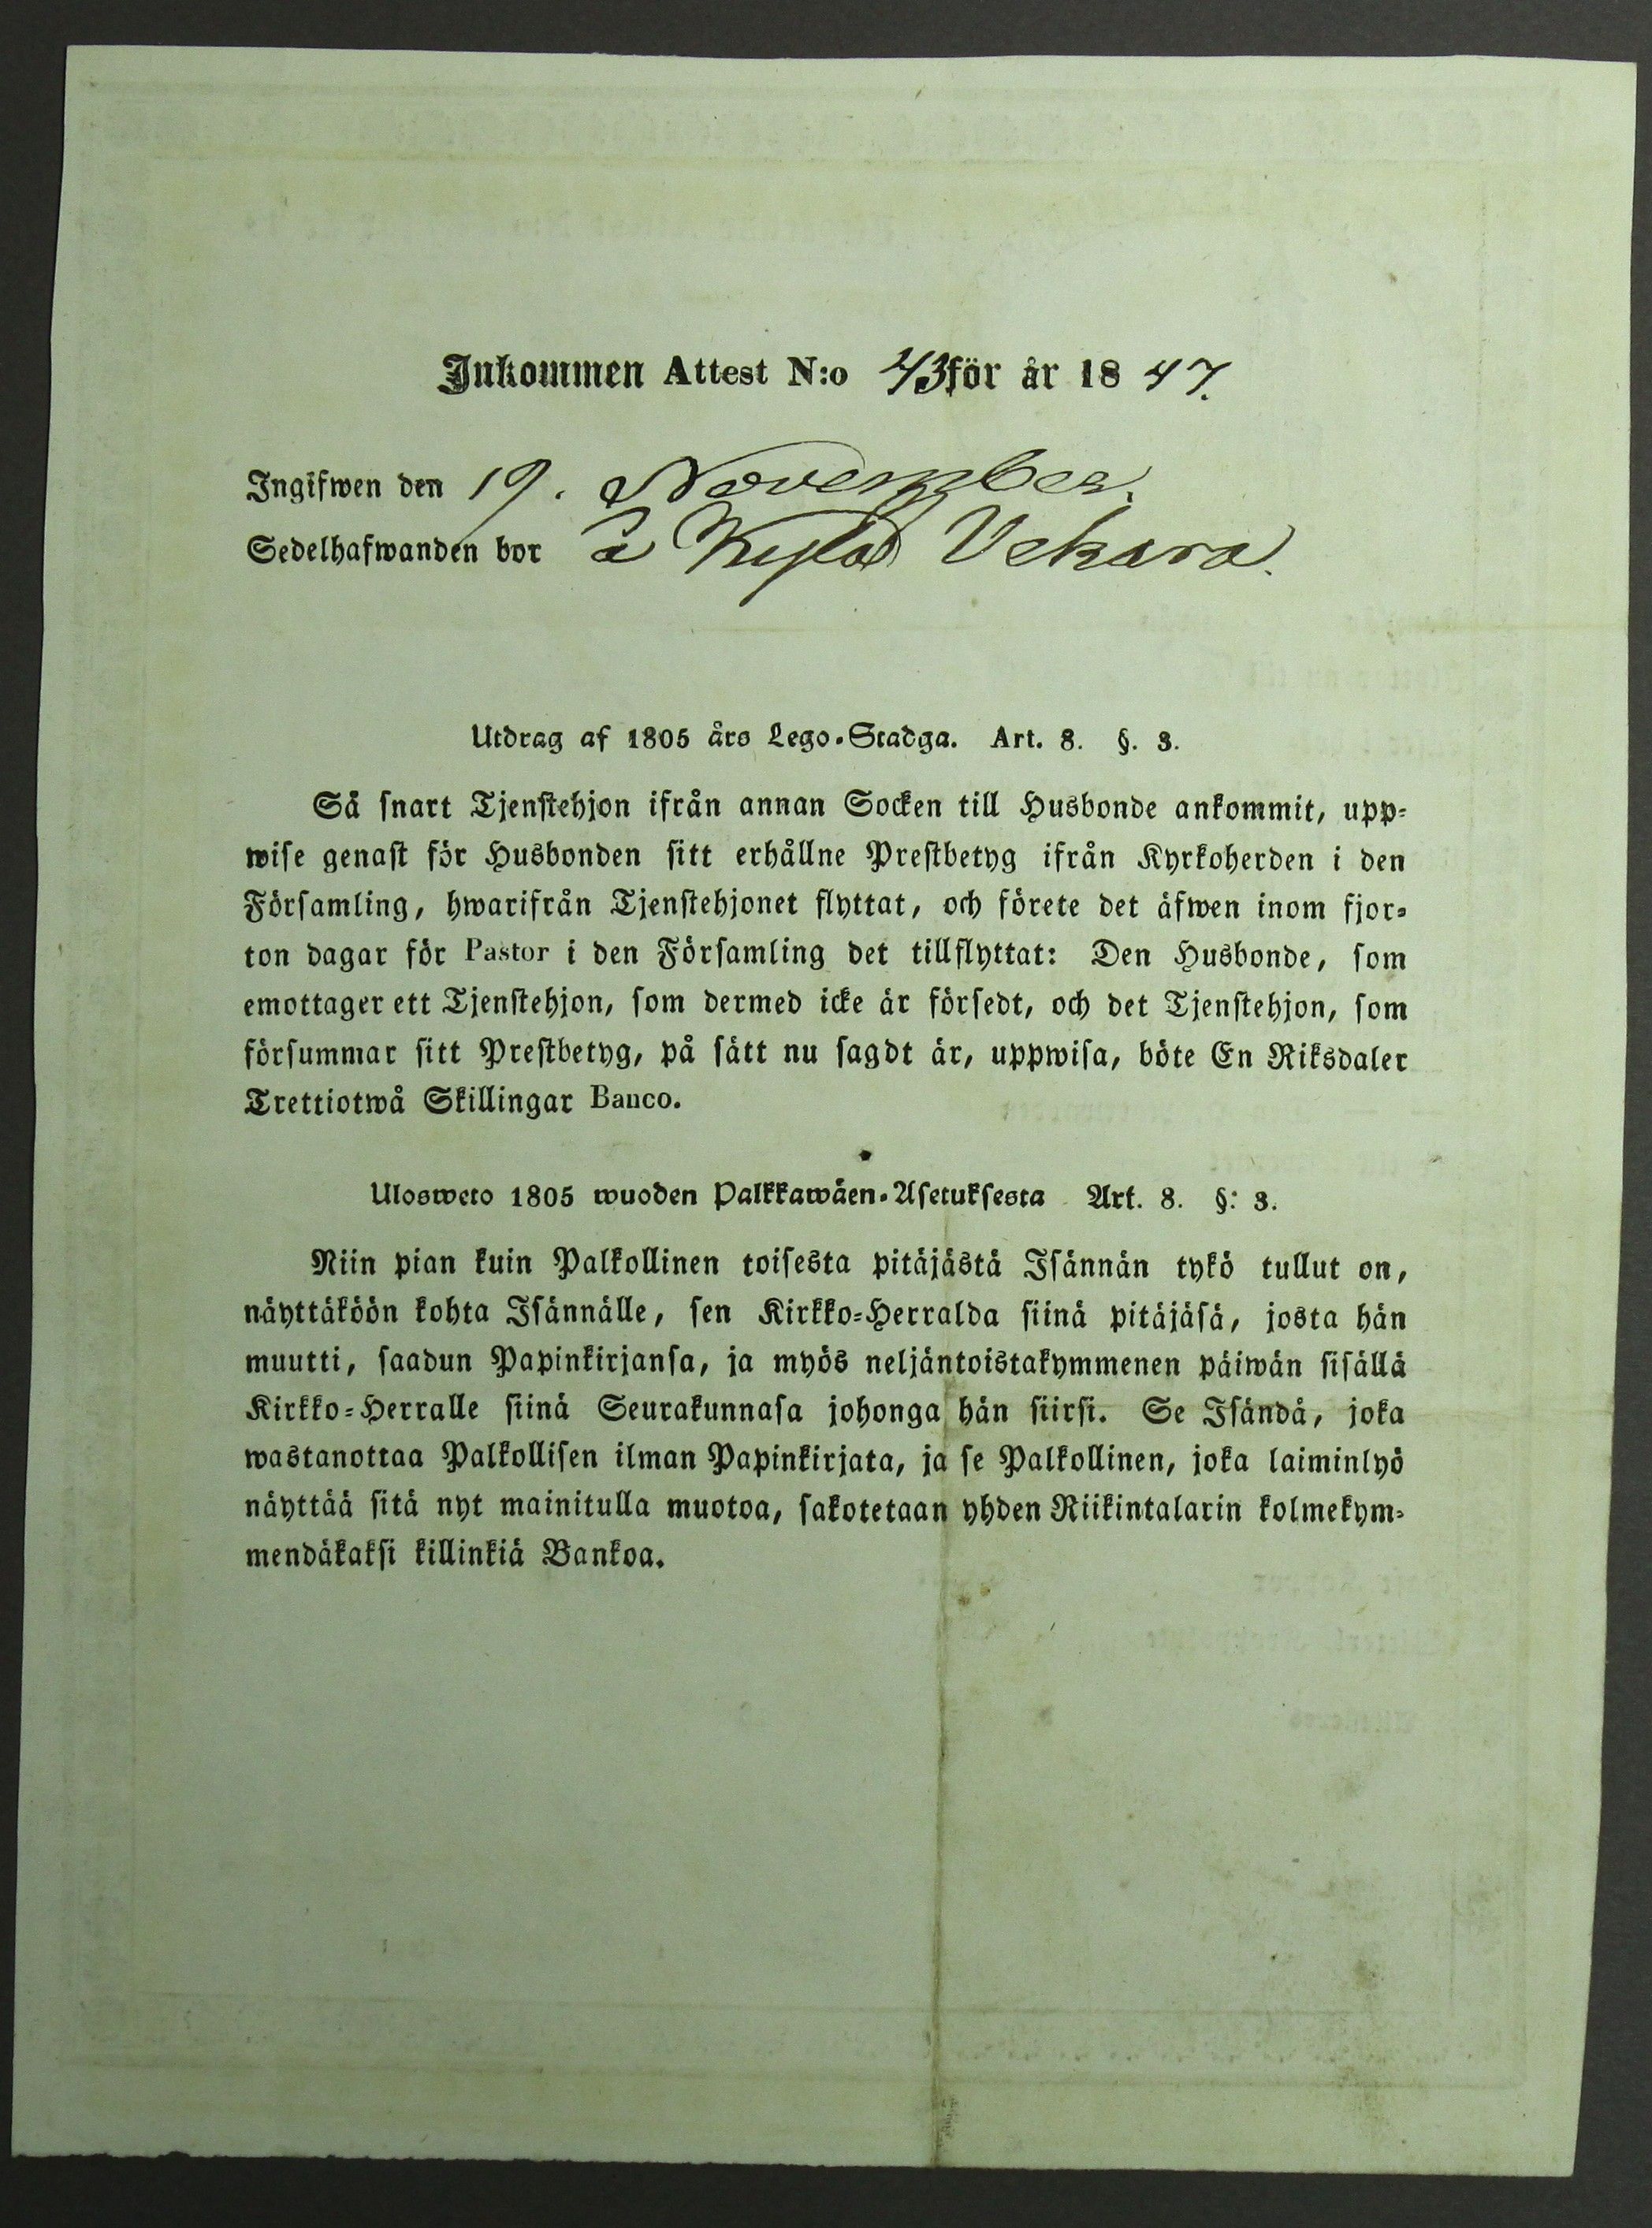 Inkommen Attest N:o 43 för år 1847.
Ingifwen den 19. November.
Sedelhafwanden bor å Kylä Vekara.
Utdrag af 1805 års Lego-Stadga. Art. 8. §. 3.
Så snart Tjenstehjon ifrån annan Socken till Husbonde ankommit, upp-
wise genast för Husbonden sitt erhållne Prestbetyg ifrån Kyrkoherden i den
Församling, hwarifrån Tjenstehjonet flyttat, och förete det äfwen inom fjor-
ton dagar för Pastor i den Församling det tillflyttat: Den Husbonde, som
emottager ett Tjenstehjon, som dermed icke är försedt, och det Tjenstehjon, som
försummar sitt Prestbetyg, på sätt nu sagdt är, uppwisa, böte En Riksdaler
Trettiotwå Skillingar Banco.
Ulosweto 1805 wuoden Palkkawäen-Asetuksesta Art. 8. §: 3.
Niin pian kuin Palkollinen toisesta pitäjästä Isännän tykö tullut on,
näyttäköön kohta Isännälle, sen Kirkko-Herralda siinä pitäjäsä, josta hän
muutti, saadun Papinkirjansa, ja myös neljäntoistakymmenen päiwän sisällä
Kirkko-Herralle siinä Seurakunnasa johonga hän siirsi. Se Isändä, joka
wastanottaa Palkollisen ilman Papinkirjata, ja se Palkollinen, joka laiminlyö
näyttää sitä nyt mainitulla muotoa, sakotetaan yhden Riikintalarin kolmekym-
mendäkaksi killinkiä Bankoa.